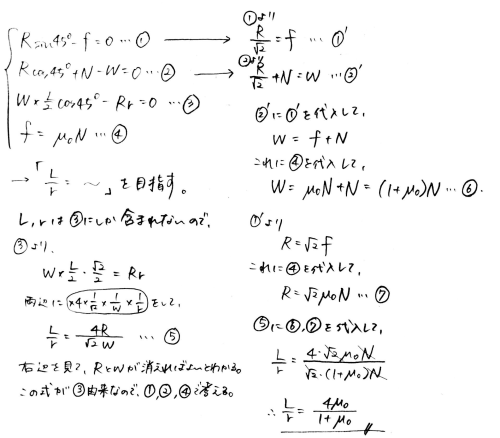 R sin45° - f = 0 … ①
R cos45° + N - W = 0 … ②
W × 1/2 cos45° - Rr = 0 … ③
f = μ₀N … ④
→「L/r = 〜」を目指す。
L, r は③にしか含まれないので、
③より、
W × L/2 · √2/2 = Rr
両辺に ×4 × 1/√2 × 1/W × 1/r をして、
L/r = 4R/√2W … ⑤
右辺を見て、RとWが消えればよいとわかる。
この式が③由来なので、①,②,④で考える。
①より
R/√2 = f … ①′
②より
R/√2 + N = W … ②′
②′に①′を代入して、
W = f + N
これに④を代入して、
W = μ₀N + N = (1+μ₀)N … ⑥.
①′より
R = √2 f
これに④を代入して、
R = √2 μ₀N … ⑦
⑤に⑥,⑦を代入して、
L/r = 4·√2 μ₀N / √2·(1+μ₀)N
∴ L/r = 4μ₀ / 1+μ₀